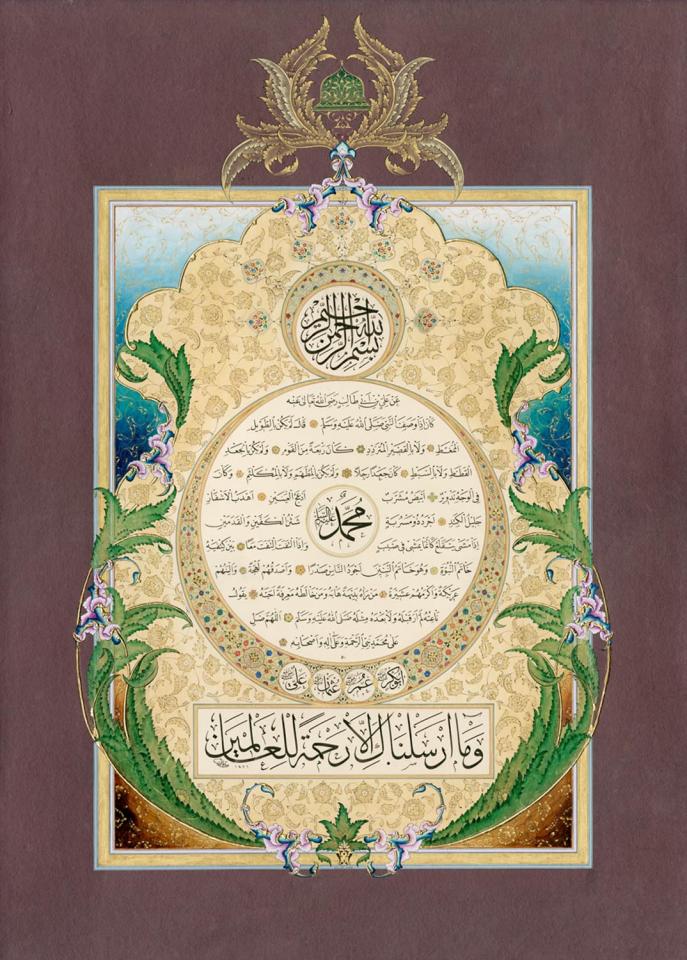 بسم الله الرحمن الرحيم
عن علي بن ابي طالب رضي الله تعالى عنه
كان اذا وصف النبي صلى الله عليه وسلم قال لم يكن بالطويل
الممغط ولا بالقصير المتردد كان ربعة من القوم ولم يكن بالجعد
القطط ولا بالسبط كان جعدا رجلا ولم يكن بالمطهم ولا بالمكلثم وكان
في الوجه تدوير ابيض مشرب ادعج العينين اهدب الاشفار
جليل الكتد اجرد ذو مسربة شثن الكفين والقدمين
محمد عليه السلام
اذا مشى يتقلع كانما يمشي في صبب واذا التفت التفت معا بين كتفيه
خاتم النبوة وهو خاتم النبيين اجود الناس صدرا واصدقهم لهجة والينهم
عريكة واكرمهم عشيرة من رآه بديهة هابه ومن خالطه معرفة احبه يقول
ناعته لم ار قبله ولا بعده مثله صلى الله عليه وسلم اللهم صل
على محمد نبي الرحمة وعلى آله واصحابه
ابوبكر عمر عثمان علي
وما ارسلناك الا رحمة للعالمين